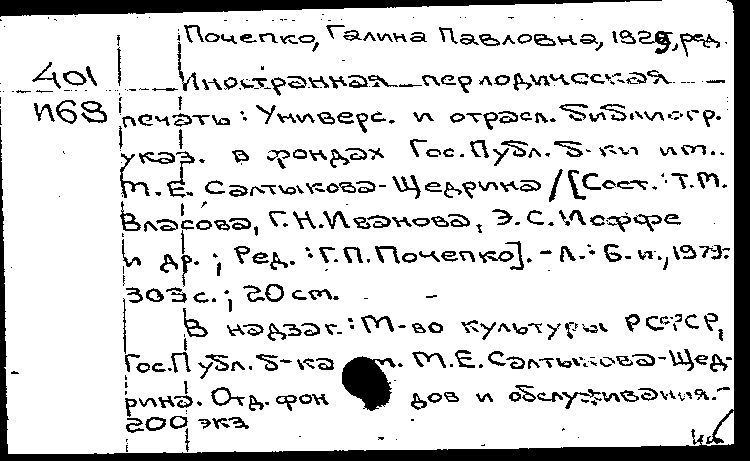 Почепко, Галина Павловна, 1929, ред.
401 Иностранная периодическая
И68 печать: Универс. и отрасл. библиогр.
указ. в фондах Гос. Публ. б-ки им.
М.Е. Салтыкова-Щедрина / [Сост.: Т.М.
Власова, Г.Н. Иванова, Э.С. Иоффе
и др.; Ред.: Г.П. Почепко]. - Л.: Б.и., 1979.
303 с.; 20 см.
В надзаг.: М-во культуры РСФСР,
Гос. Публ. б-ка им. М.Е. Салтыкова-Щед-
рина. Отд. фондов и обслуживания. -
200 экз.